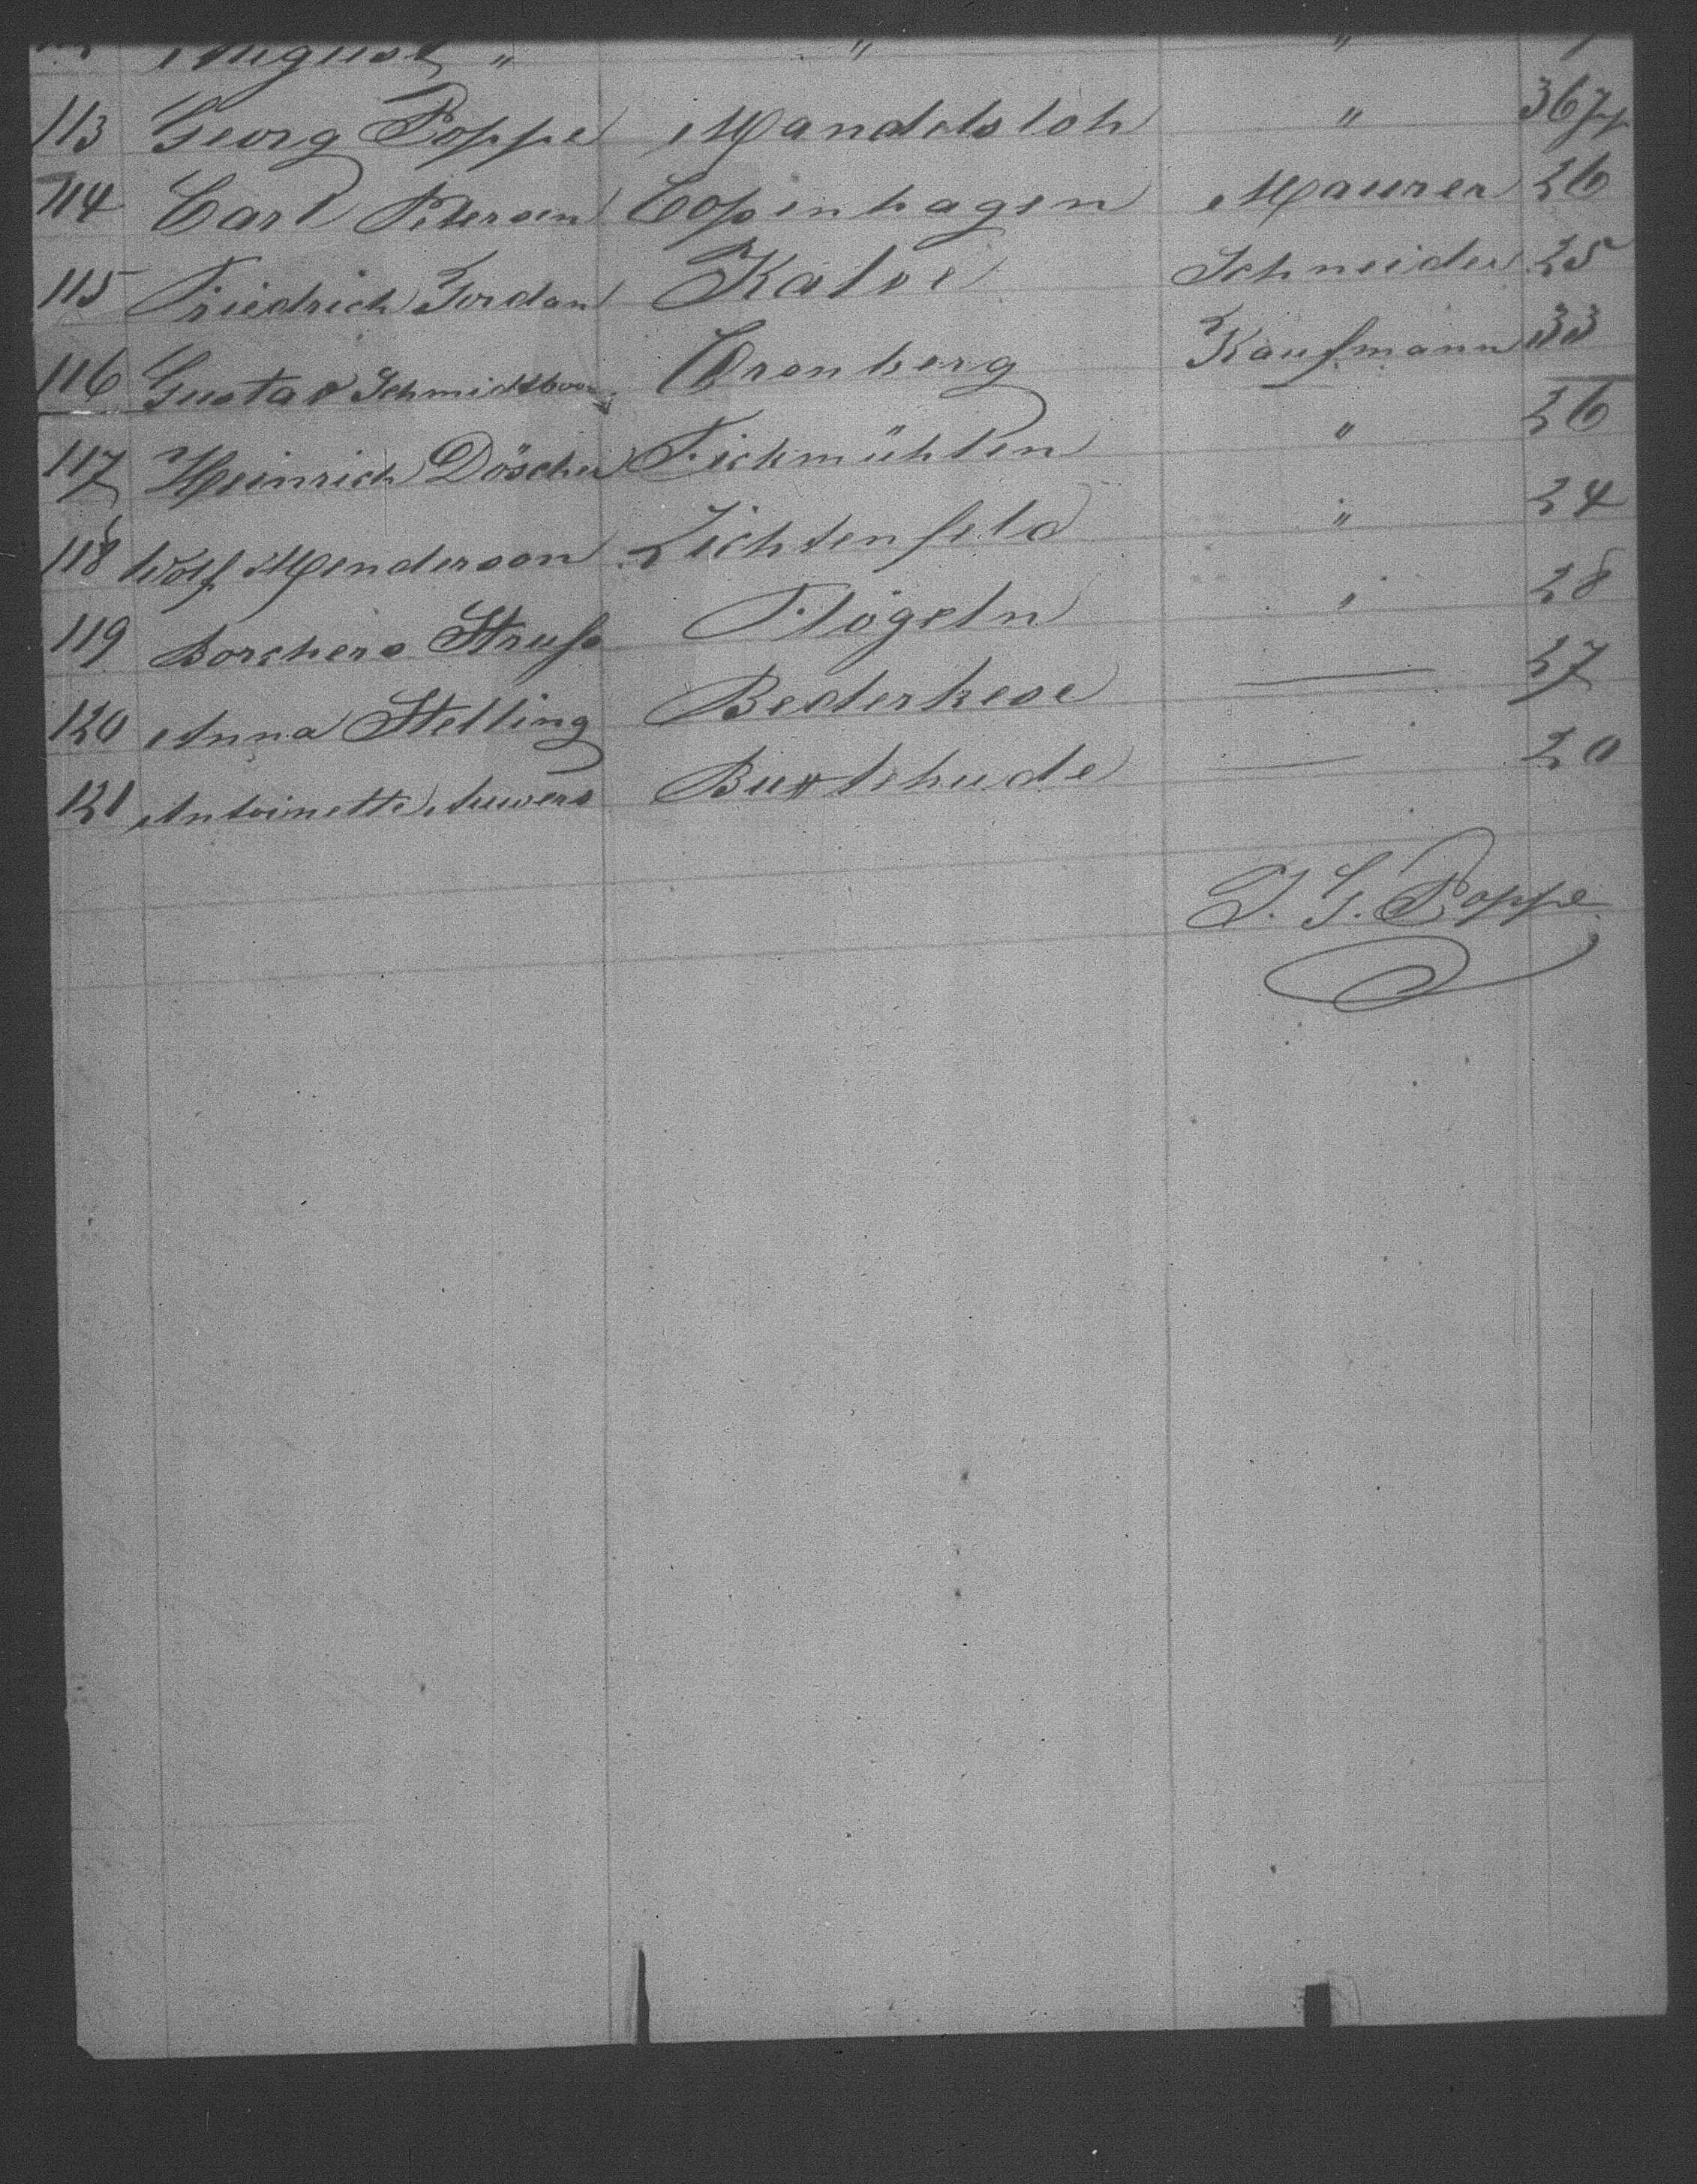 August " " "
113 Georg Poppe Mandelsloh " 36
114 Carl Petersen Copenhagen Maurer 26
115 Friedrich Jordan Kaloe Schneider 25
116 Gustav Cronberg Kaufmann 33
117 Heinrich Döscher Fickmühlen " 26
118 Wolf Menderson Lichtenfeld " 24
119 Borchers Struß Flögeln " 28
120 Anna Stelling Bederkese — 27
121 Antoinette Auwers Buxtehude — 20
J. G. Poppe